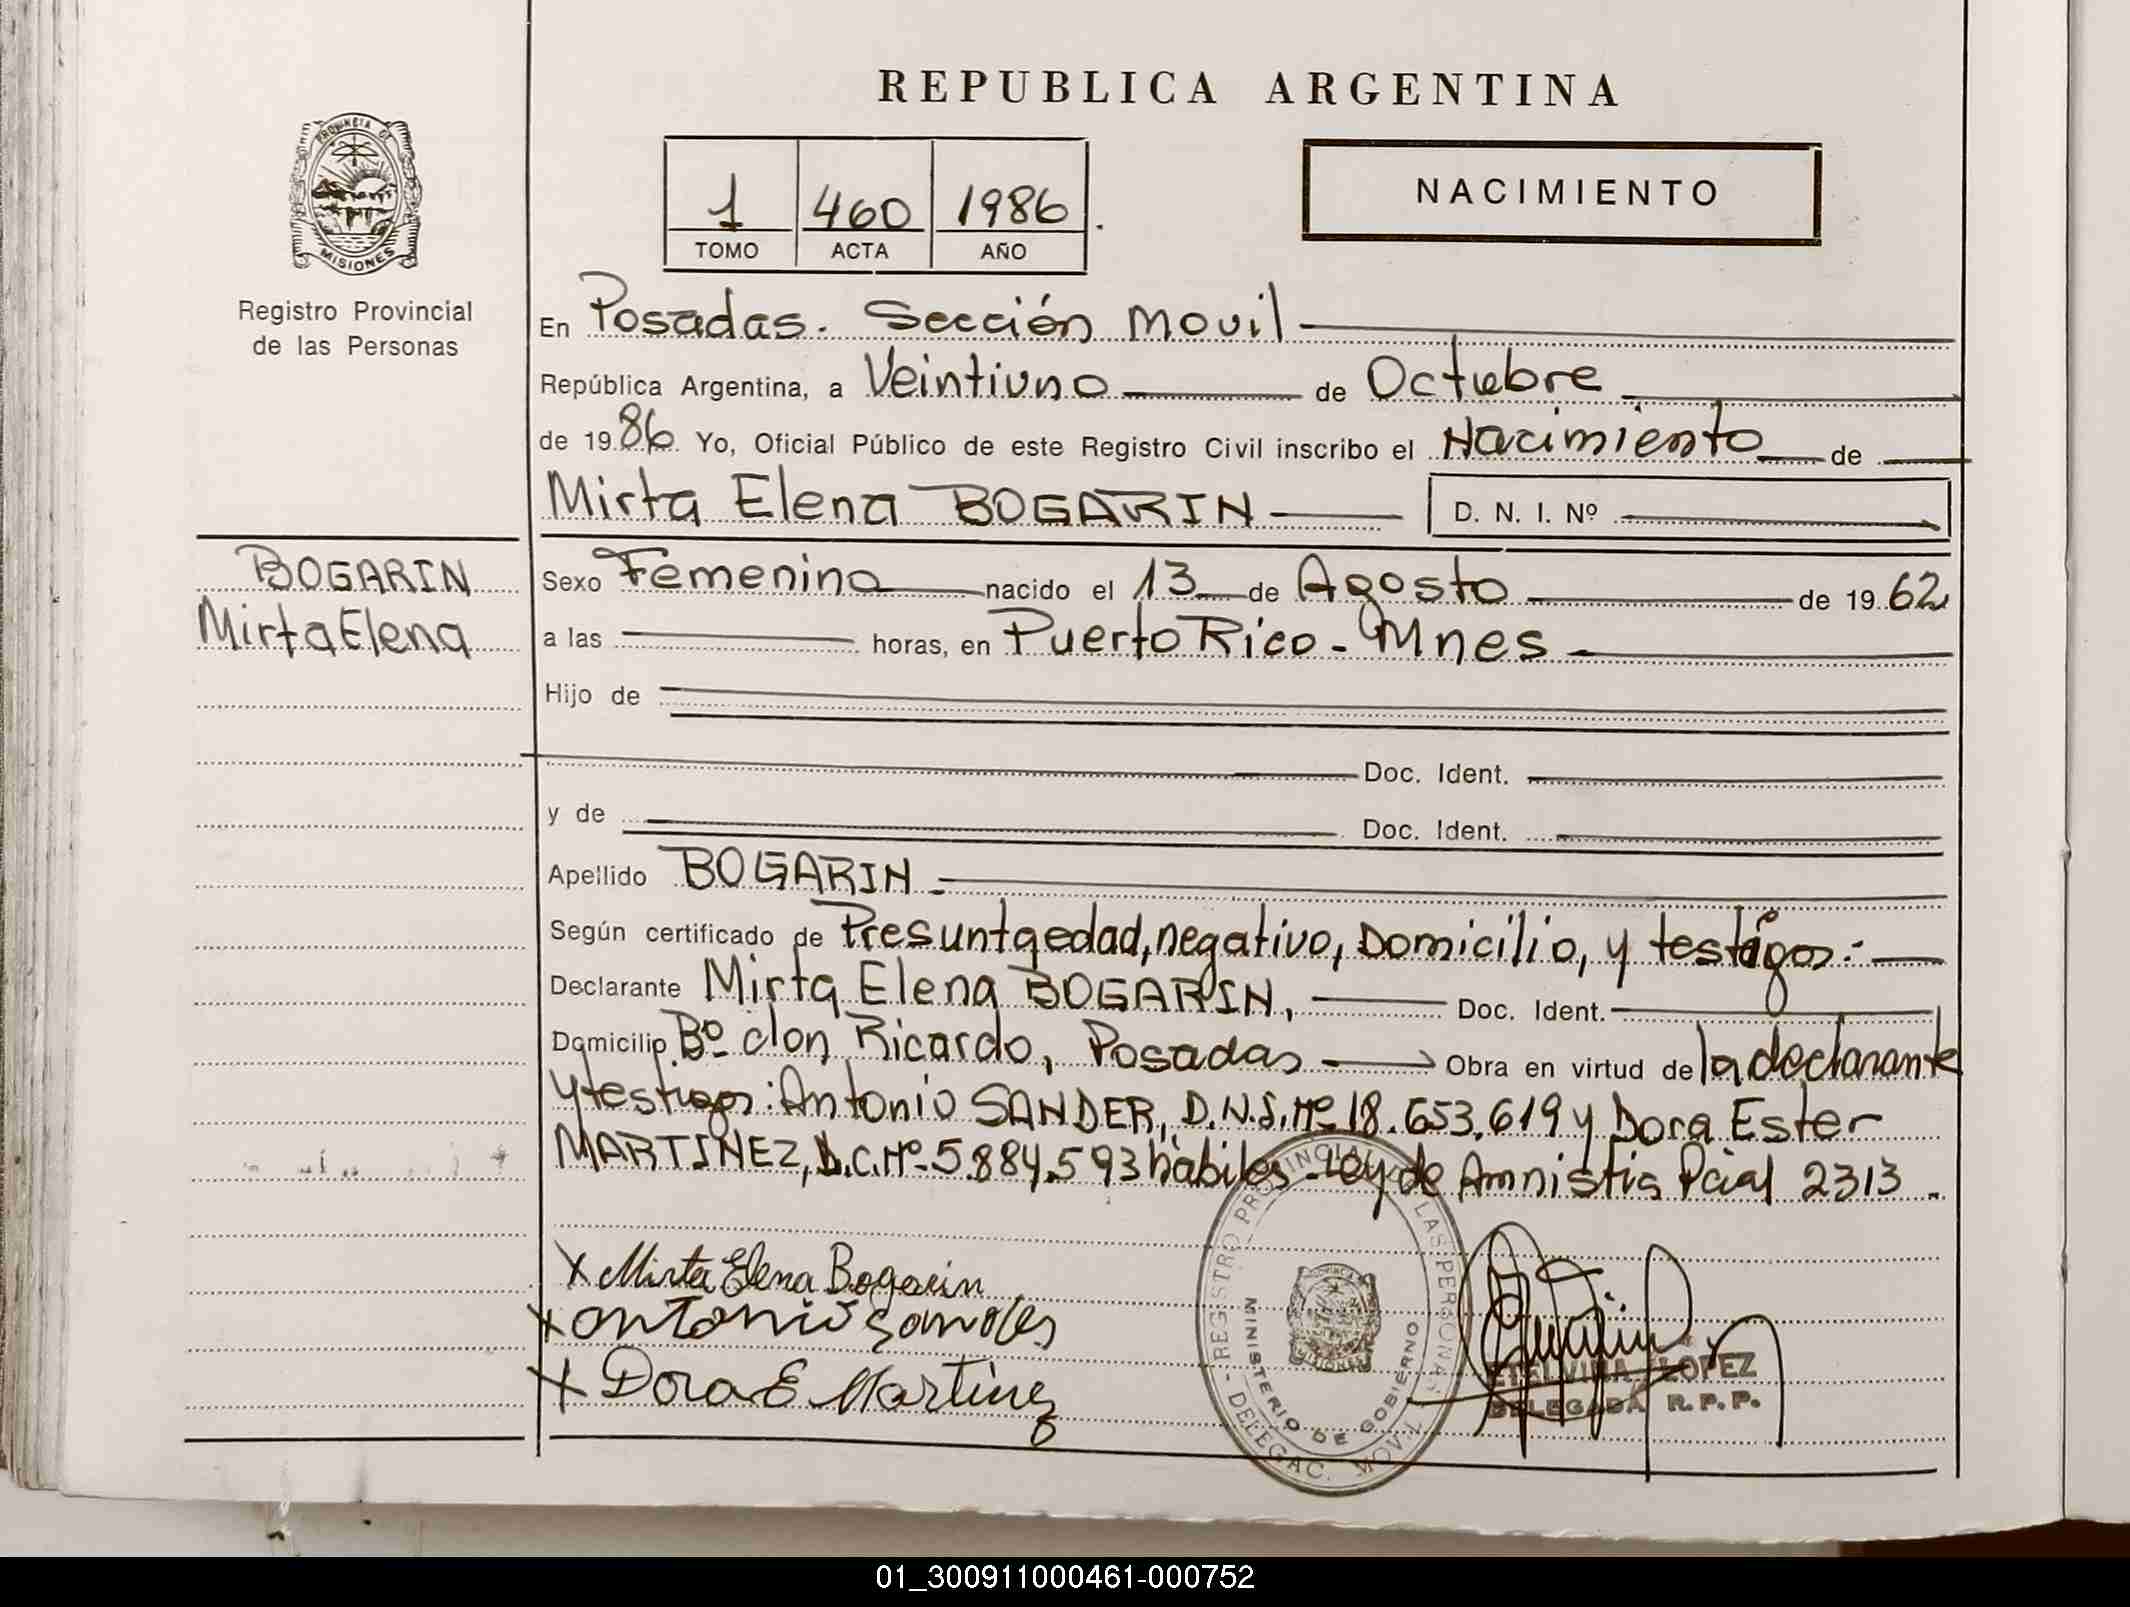 REPUBLICA ARGENTINA
PROVINCIA DE
MISIONES
Registro Provincial
de las Personas
1 460 1986
TOMO ACTA AÑO
NACIMIENTO
En Posadas. Sección Movil
República Argentina, a Veintiuno de Octubre
de 1986 Yo, Oficial Público de este Registro Civil inscribo el Nacimiento de
Mirta Elena BOGARIN D. N. I. Nº
BOGARIN
Mirta Elena
Sexo Femenino nacido el 13 de Agosto de 1962
a las horas, en Puerto Rico - Mnes
Hijo de
Doc. Ident.
y de Doc. Ident.
Apellido BOGARIN
Según certificado de Presunta edad, negativo, Domicilio, y testigos:
Declarante Mirta Elena BOGARIN, Doc. Ident.
Domicilio Bº don Ricardo, Posadas Obra en virtud de la declarante
y testigos: Antonio SANDER, D.N.I. Nº 18.653.619 y Dora Ester
MARTINEZ, L.C. Nº 5.884.593 hábiles - Ley de Amnistia Pcial 2313.
X Mirta Elena Bogarin
X antonio Sander
X Dora E Martinez
REGISTRO PROVINCIAL DE LAS PERSONAS
MINISTERIO DE GOBIERNO
DELEGAC. MOVIL
MISIONES
ETELVINA LOPEZ
DELEGADA R.P.P.
01_300911000461-000752